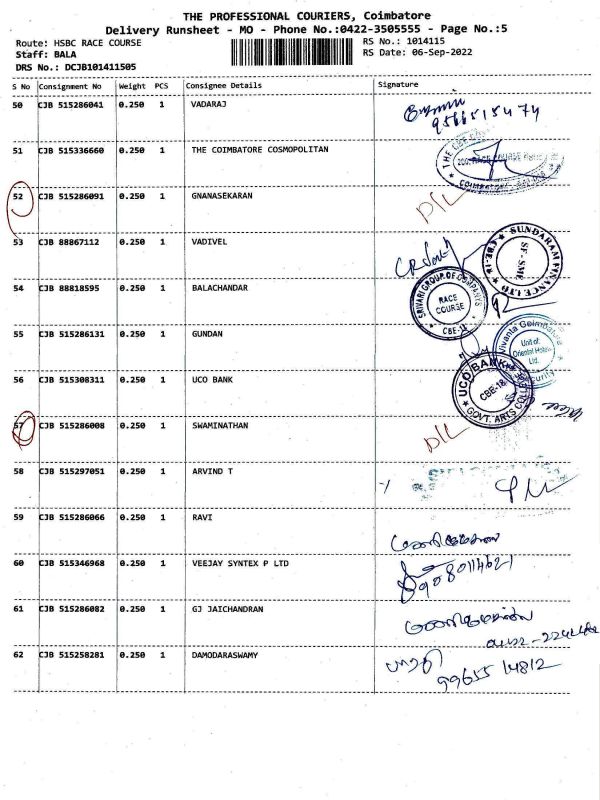 THE PROFESSIONAL COURIERS, Coimbatore
Delivery Runsheet - MO - Phone No.:0422-3505555 - Page No.:5
Route: HSBC RACE COURSE RS No.: 1014115
Staff: BALA RS Date: 06-Sep-2022
DRS No.: DCJB101411505
S No Consignment No Weight PCS Consignee Details Signature
50 CJB 515286041 0.250 1 VADARAJ
9566515474
51 CJB 515336660 0.250 1 THE COIMBATORE COSMOPOLITAN
52 CJB 515286091 0.250 1 GNANASEKARAN D/L
53 CJB 88867112 0.250 1 VADIVEL
SUNDARAM FINANCE LTD CBE-18 SF-SME
54 CJB 88818595 0.250 1 BALACHANDAR
SRIVARI GROUP OF COMPANYS RACE COURSE CBE-18
55 CJB 515286131 0.250 1 GUNDAN
Vivanta Coimbatore Unit of: Oriental Hotels Ltd. Security
56 CJB 515308311 0.250 1 UCO BANK
UCO BANK CBE-18 GOVT. ARTS COLLEGE
57 CJB 515286008 0.250 1 SWAMINATHAN D/L
58 CJB 515297051 0.250 1 ARVIND T
59 CJB 515286066 0.250 1 RAVI
60 CJB 515346968 0.250 1 VEEJAY SYNTEX P LTD
61 CJB 515286082 0.250 1 GJ JAICHANDRAN
62 CJB 515258281 0.250 1 DAMODARASWAMY
9965514812